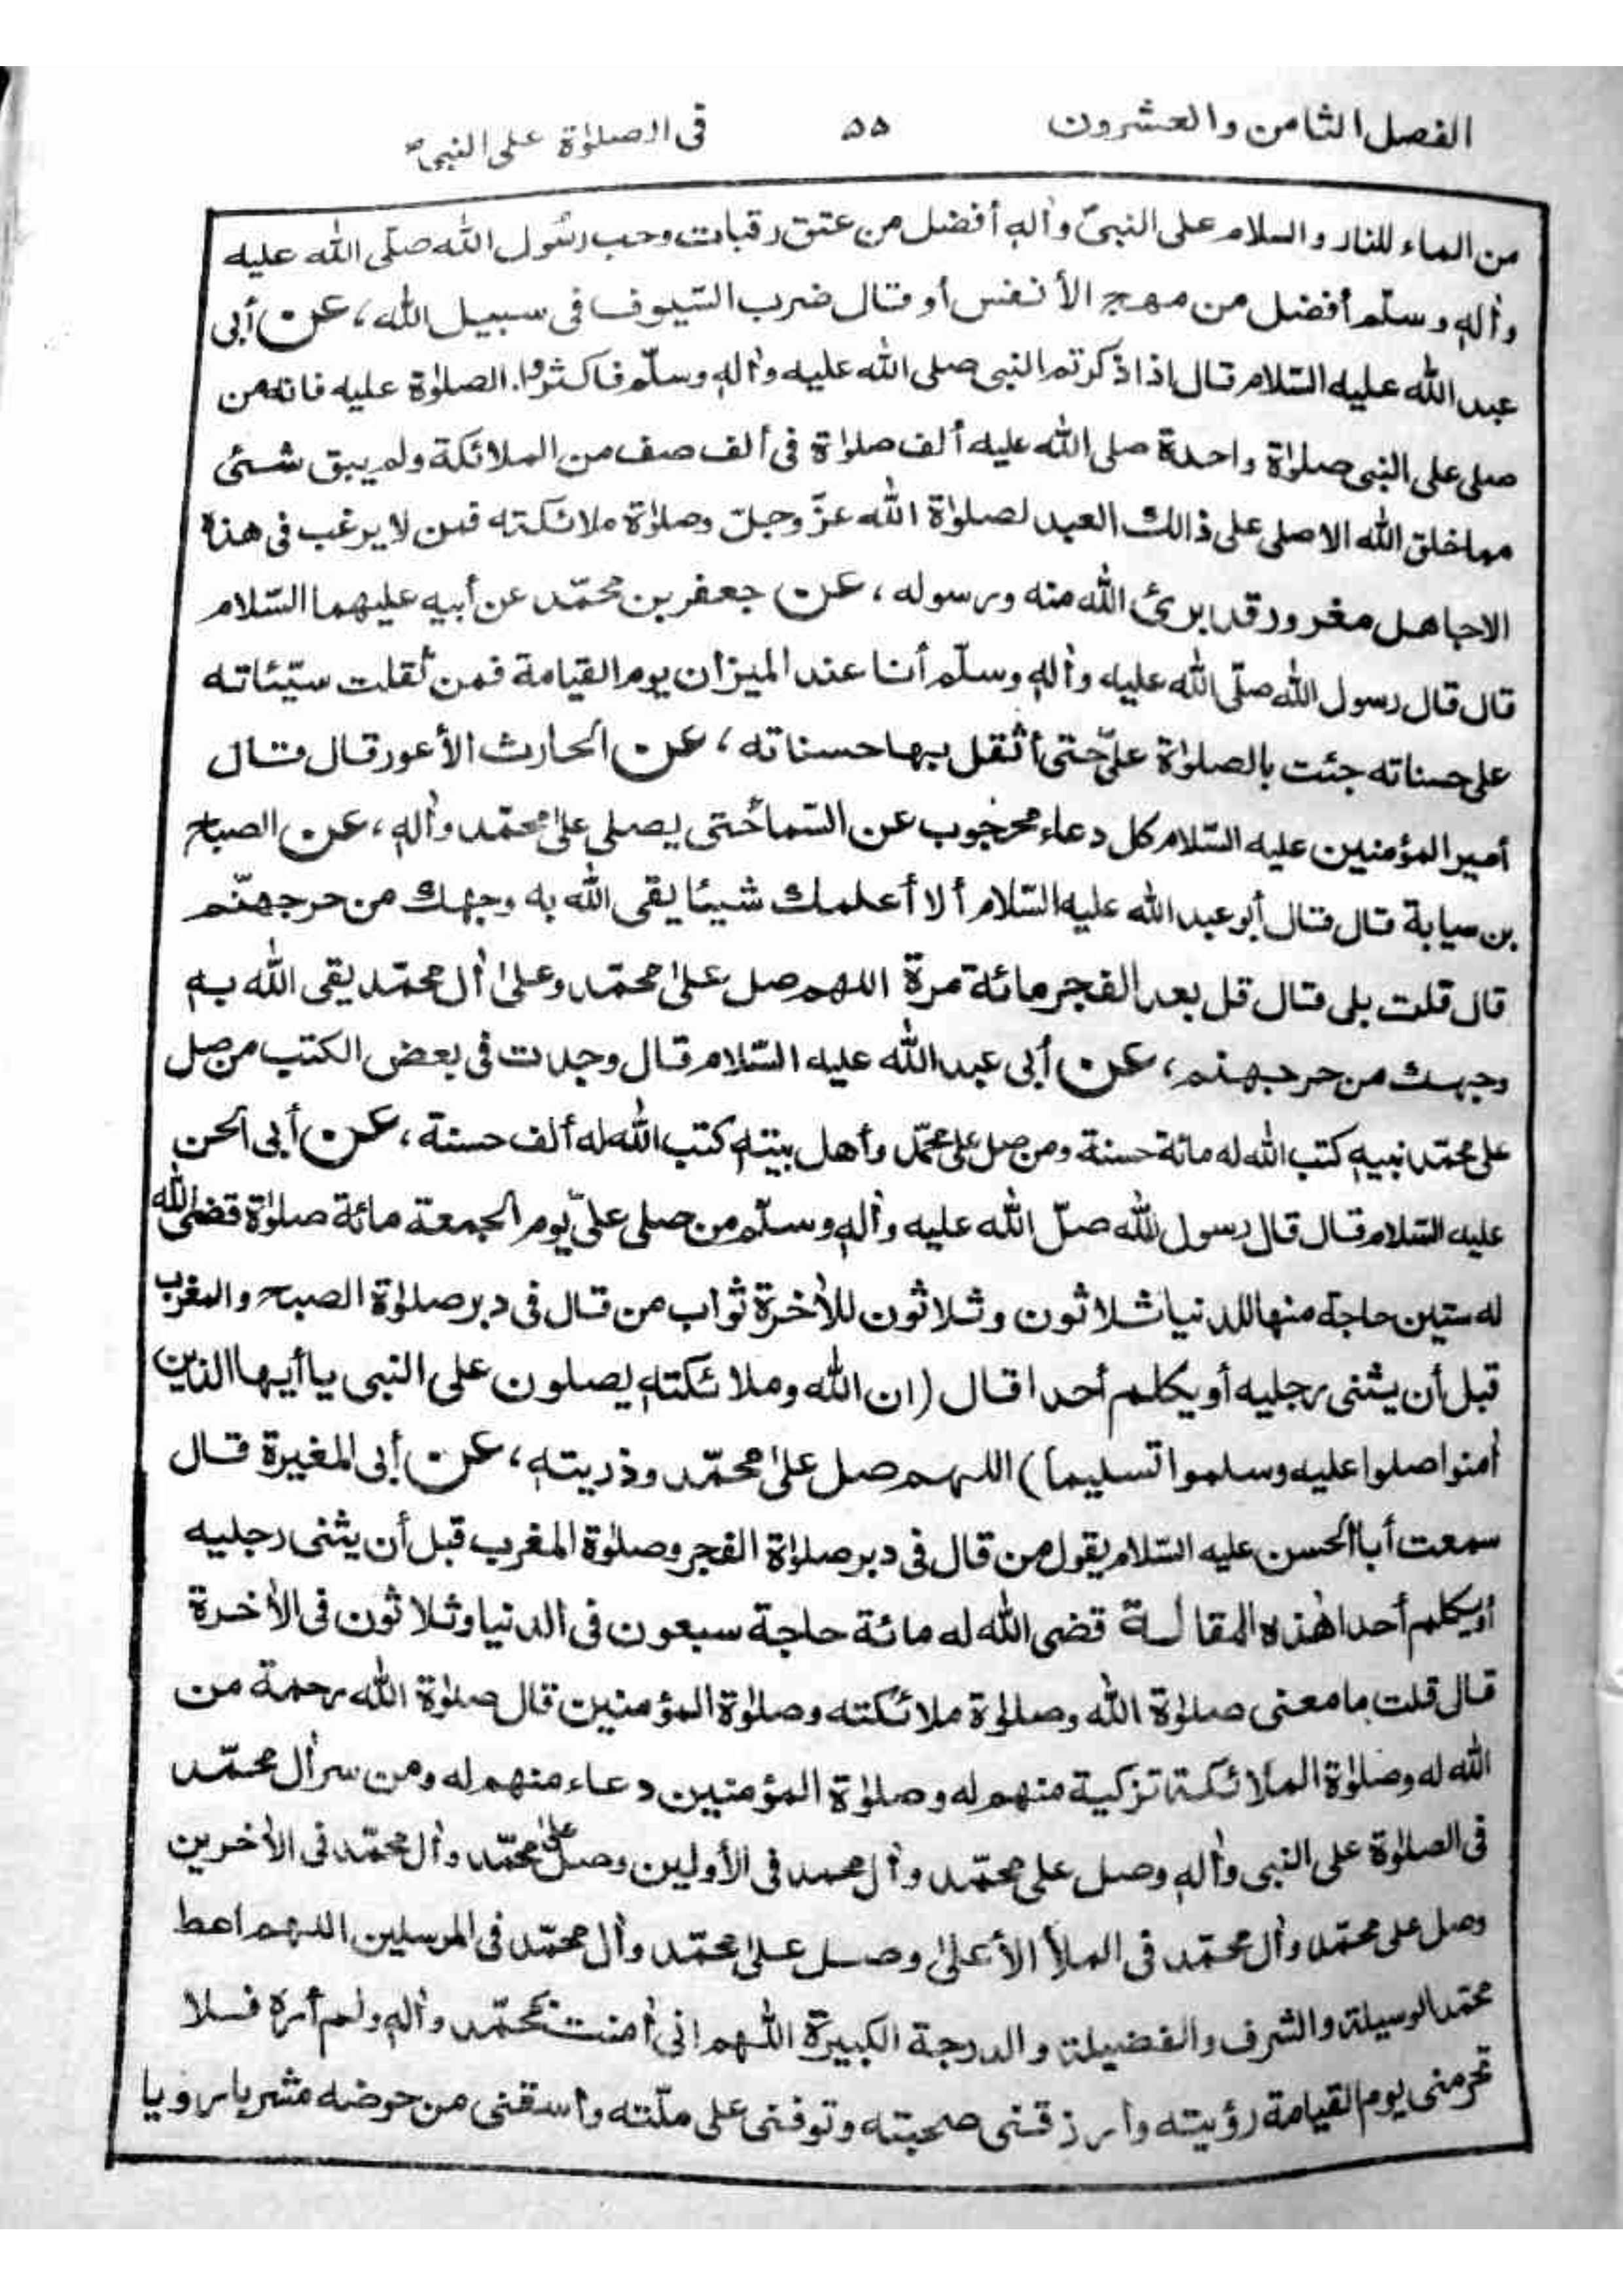 الفصل الثامن والعشرون ٥٥ فى الصلوٰة على النبىؐ
من الماء للنار والسلام على النبىّ واٰلهٖ أفضل من عتق رقبات وحب رسُول الله صلّى الله عليه
واٰلهٖ وسلّم أفضل من مهج الأنفس أو قال ضرب السّيوف فى سبيل الله، عن أبى
عبد الله عليه السّلام قال اذا ذكرتم النبى صلى الله عليه واٰلهٖ وسلّم فاكثروا. الصلوٰة عليه فانه من
صلى على النبى صلوٰة واحدة صلى الله عليه ألف صلوٰة فى ألف صف من الملائكة ولم يبق شئى
مما خلق الله الا صلى على ذالك العبد لصلوٰة الله عزّ وجلّ وصلوٰة ملائكته فمن لا يرغب فى هذا
الا جاهل مغرور قد برئ الله منه ورسوله، عن جعفر بن محمّد عن أبيه عليهما السّلام
قال قال رسول الله صلّى الله عليه واٰلهٖ وسلّم أنا عند الميزان يوم القيامة فمن ثقلت سيّئاته
على حسناته جئت بالصلوٰة علىّ حتى أثقل بها حسناته، عن الحارث الأعور قال قال
أمير المؤمنين عليه السّلام كل دعاء محجوب عن السّماء حتى يصلى علىٰ محمّد واٰلهٖ، عن الصباح
بن سيابة قال قال أبو عبد الله عليه السّلام ألا أعلمك شيئا يقى الله به وجهك من حر جهنّم
قال قلت بلى قال قل بعد الفجر مائة مرة اللهم صل علىٰ محمّد وعلىٰ اٰل محمّد يقى الله بهٖ
وجهك من حر جهنم، عن أبى عبد الله عليه السّلام قال وجدت فى بعض الكتب من صل
على محمّد نبيهٖ كتب الله له مائة حسنة ومن صل على محمّد وأهل بيتهٖ كتب الله له ألف حسنة، عن أبى الحسن
عليه السّلام قال قال رسول الله صلّ الله عليه واٰلهٖ وسلّم من صلى علىّ يوم الجمعة مائة صلوٰة قضى الله
له ستين حاجة منها للدنيا ثلاثون وثلاثون للاٰخرة ثواب من قال فى دبر صلوٰة الصبح والمغرب
قبل أن يثنى رجليه أو يكلم أحدا قال (ان الله وملائكتهٖ يصلون على النبى يا أيها الذين
اٰمنوا صلوا عليه وسلموا تسليما) اللهم صل علىٰ محمّد وذريتهٖ، عن أبى المغيرة قال
سمعت أبا الحسن عليه السّلام يقول من قال فى دبر صلوٰة الفجر وصلوٰة المغرب قبل أن يثنى رجليه
أو يكلم أحدا هٰذه المقالة قضى الله له مائة حاجة سبعون فى الدنيا وثلاثون فى الاٰخرة
قال قلت ما معنى صلوٰة الله وصلوٰة ملائكته وصلوٰة المؤمنين قال صلوٰة الله رحمة من
الله له وصلوٰة الملائكة تزكية منهم له وصلوٰة المؤمنين دعاء منهم له ومن سر اٰل محمّد
فى الصلوٰة على النبى واٰلهٖ وصل على محمّد واٰل محمد فى الأولين وصل علىٰ محمّد واٰل محمّد فى الاٰخرين
وصل على محمّد واٰل محمّد فى الملأ الأعلىٰ وصل علىٰ محمّد واٰل محمّد فى المرسلين اللهم اعط
محمّد الوسيلة والشرف والفضيلة والدرجة الكبيرة اللهم انى اٰمنت بمحمّد واٰلهٖ ولم أره فلا
تحرمنى يوم القيامة رؤيته وارزقنى صحبته وتوفنى على ملّته واسقنى من حوضه مشربا رويا